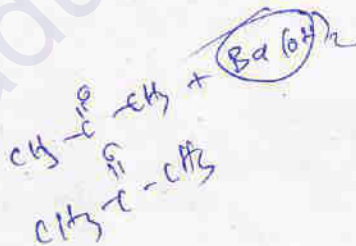 O
CH3 - C - CH3 + Ba(OH)2
O
CH3 - C - CH3